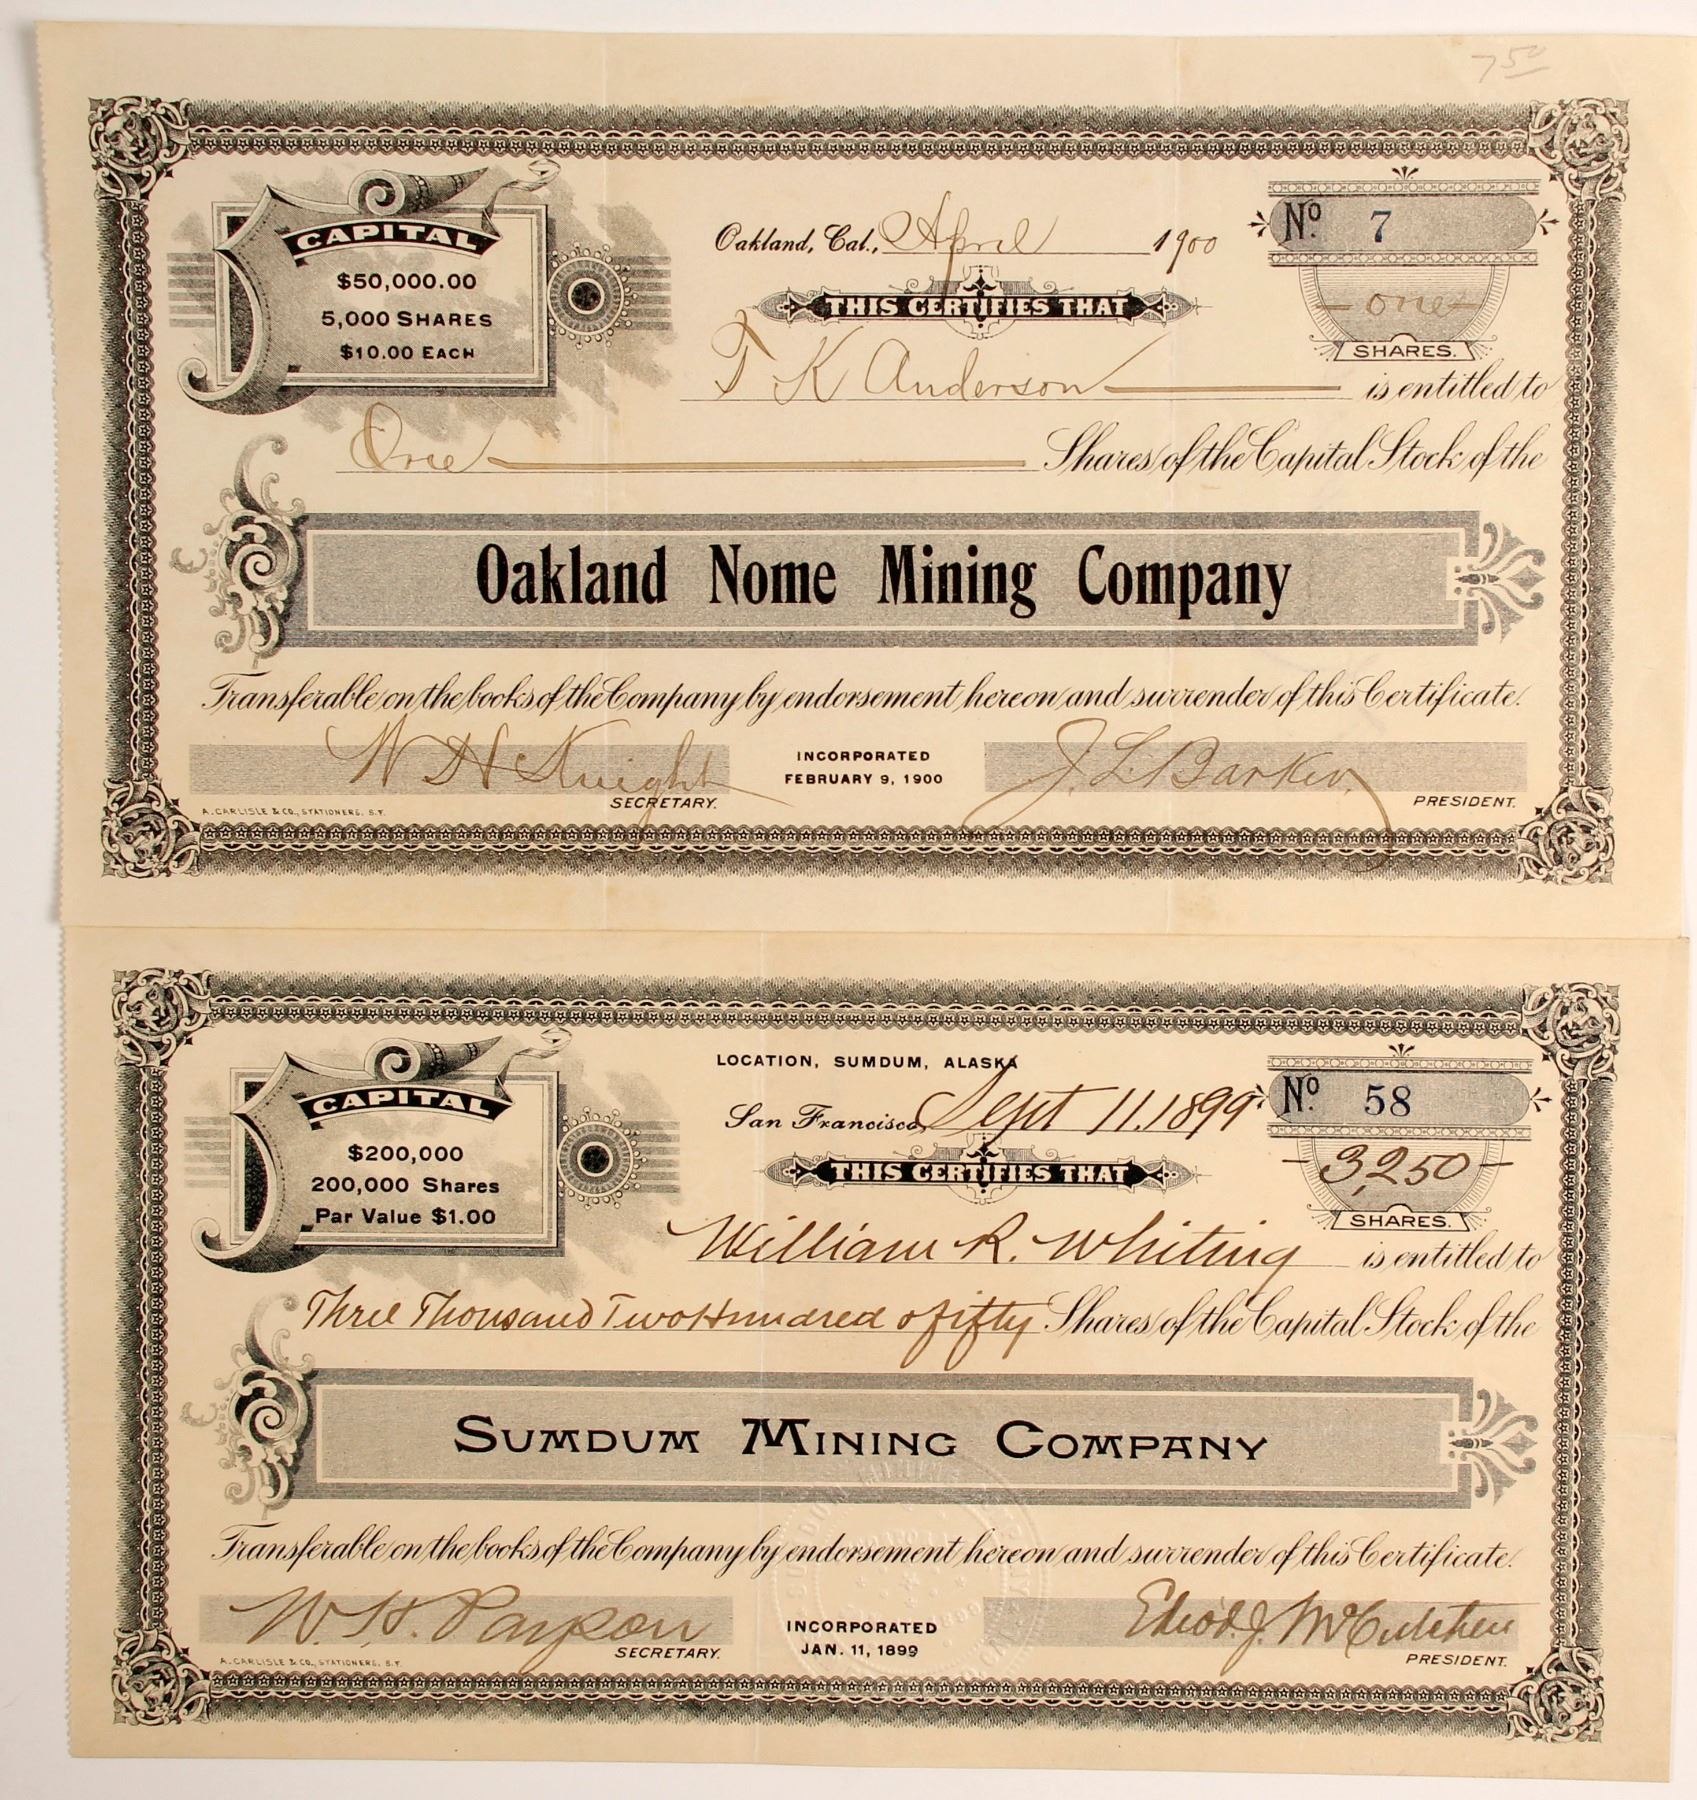 7 50
CAPITAL
$50,000.00
5,000 SHARES
$10.00 EACH
Oakland, Cal., April 1900
No. 7
THIS CERTIFIES THAT
one
SHARES.
T K Anderson is entitled to
One Shares of the Capital Stock of the
Oakland Nome Mining Company
Transferable on the books of the Company by endorsement hereon and surrender of this Certificate.
W H Knight
SECRETARY.
INCORPORATED
FEBRUARY 9, 1900
J. L. Barker
PRESIDENT.
A. CARLISLE & CO., STATIONERS, S.F.
LOCATION, SUMDUM, ALASKA
CAPITAL
$200,000
200,000 Shares
Par Value $1.00
San Francisco, Sept 11. 1899
No. 58
THIS CERTIFIES THAT
3,250
SHARES.
William R. Whiting is entitled to
Three Thousand Two Hundred & fifty Shares of the Capital Stock of the
SUMDUM MINING COMPANY
Transferable on the books of the Company by endorsement hereon and surrender of this Certificate.
W. H. Payson
SECRETARY.
INCORPORATED
JAN. 11, 1899
Edwd. J. McCutchen
PRESIDENT.
A. CARLISLE & CO., STATIONERS, S.F.